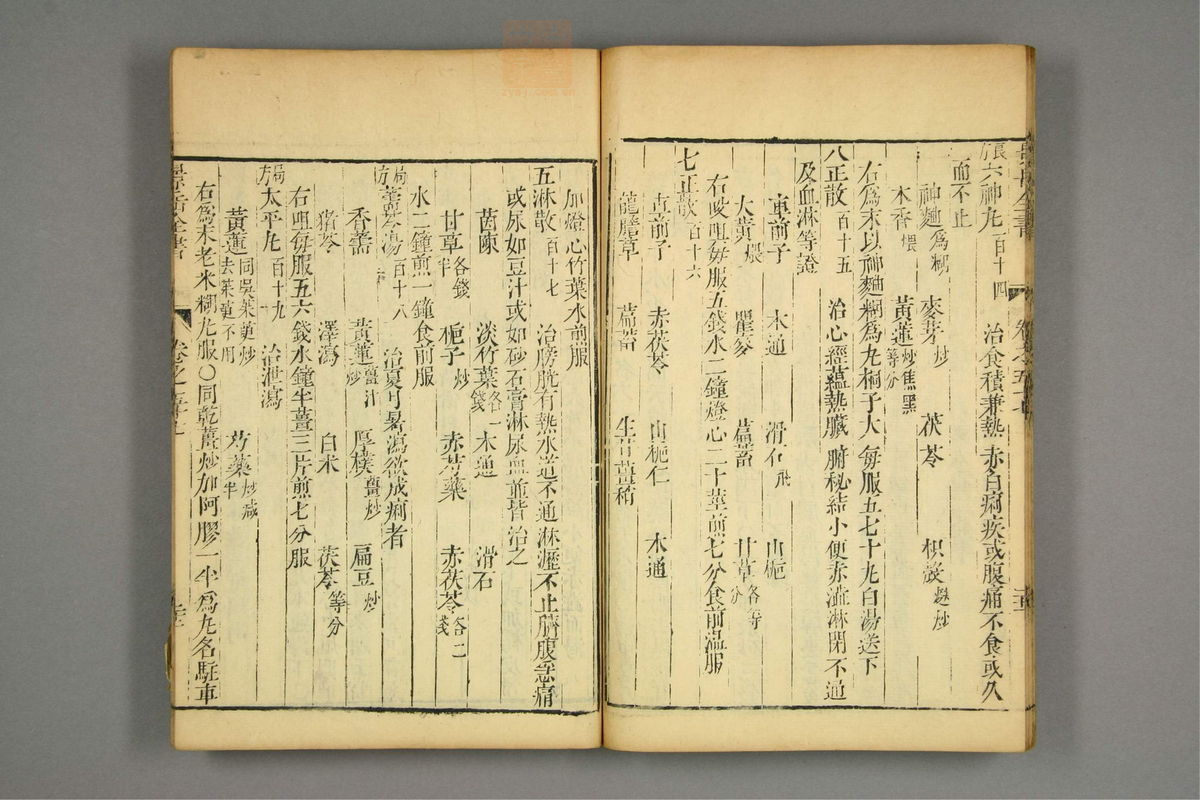 良方六神丸百十四 治食積兼熱赤白痢疾或腹痛不食或久
而不止
神麯爲糊 麥芽炒 茯苓 枳殼麩炒
木香煨 黃連炒焦黑等分
右爲末以神麯糊爲丸桐子大每服五七十丸白湯送下
八正散百十五 治心經蘊熱臟腑秘結小便赤澁淋閉不通
及血淋等證
車前子 木通 滑石飛 山梔
大黃煨 瞿麥 萹蓄 甘草各等分
右㕮咀每服五錢水二鐘燈心二十莖煎七分食前溫服
七正散百十六
車前子 赤茯苓 山梔仁 木通
龍膽草 萹蓄 生甘草稍
加燈心竹葉水煎服
五淋散百十七 治膀胱有熱水道不通淋瀝不止臍腹急痛
或尿如豆汁或如砂石膏淋尿血並皆治之
茵陳 淡竹葉各一錢 木通 滑石
甘草各錢半 梔子炒 赤芍藥 赤茯苓各二錢
水二鐘煎一鐘食前服
局方薷苓湯百十八 治夏月暑瀉欲成痢者
香薷 黃連薑汁炒 厚樸薑炒 扁豆炒
猪苓 澤瀉 白朮 茯苓等分
右㕮咀每服五六錢水鐘半薑三片煎七分服
局方太平丸百十九 治泄瀉
黃連同吳茱萸炒去茱萸不用 芍藥炒減半
右爲末老米糊丸服〇同乾薑炒加阿膠一半爲丸名駐車